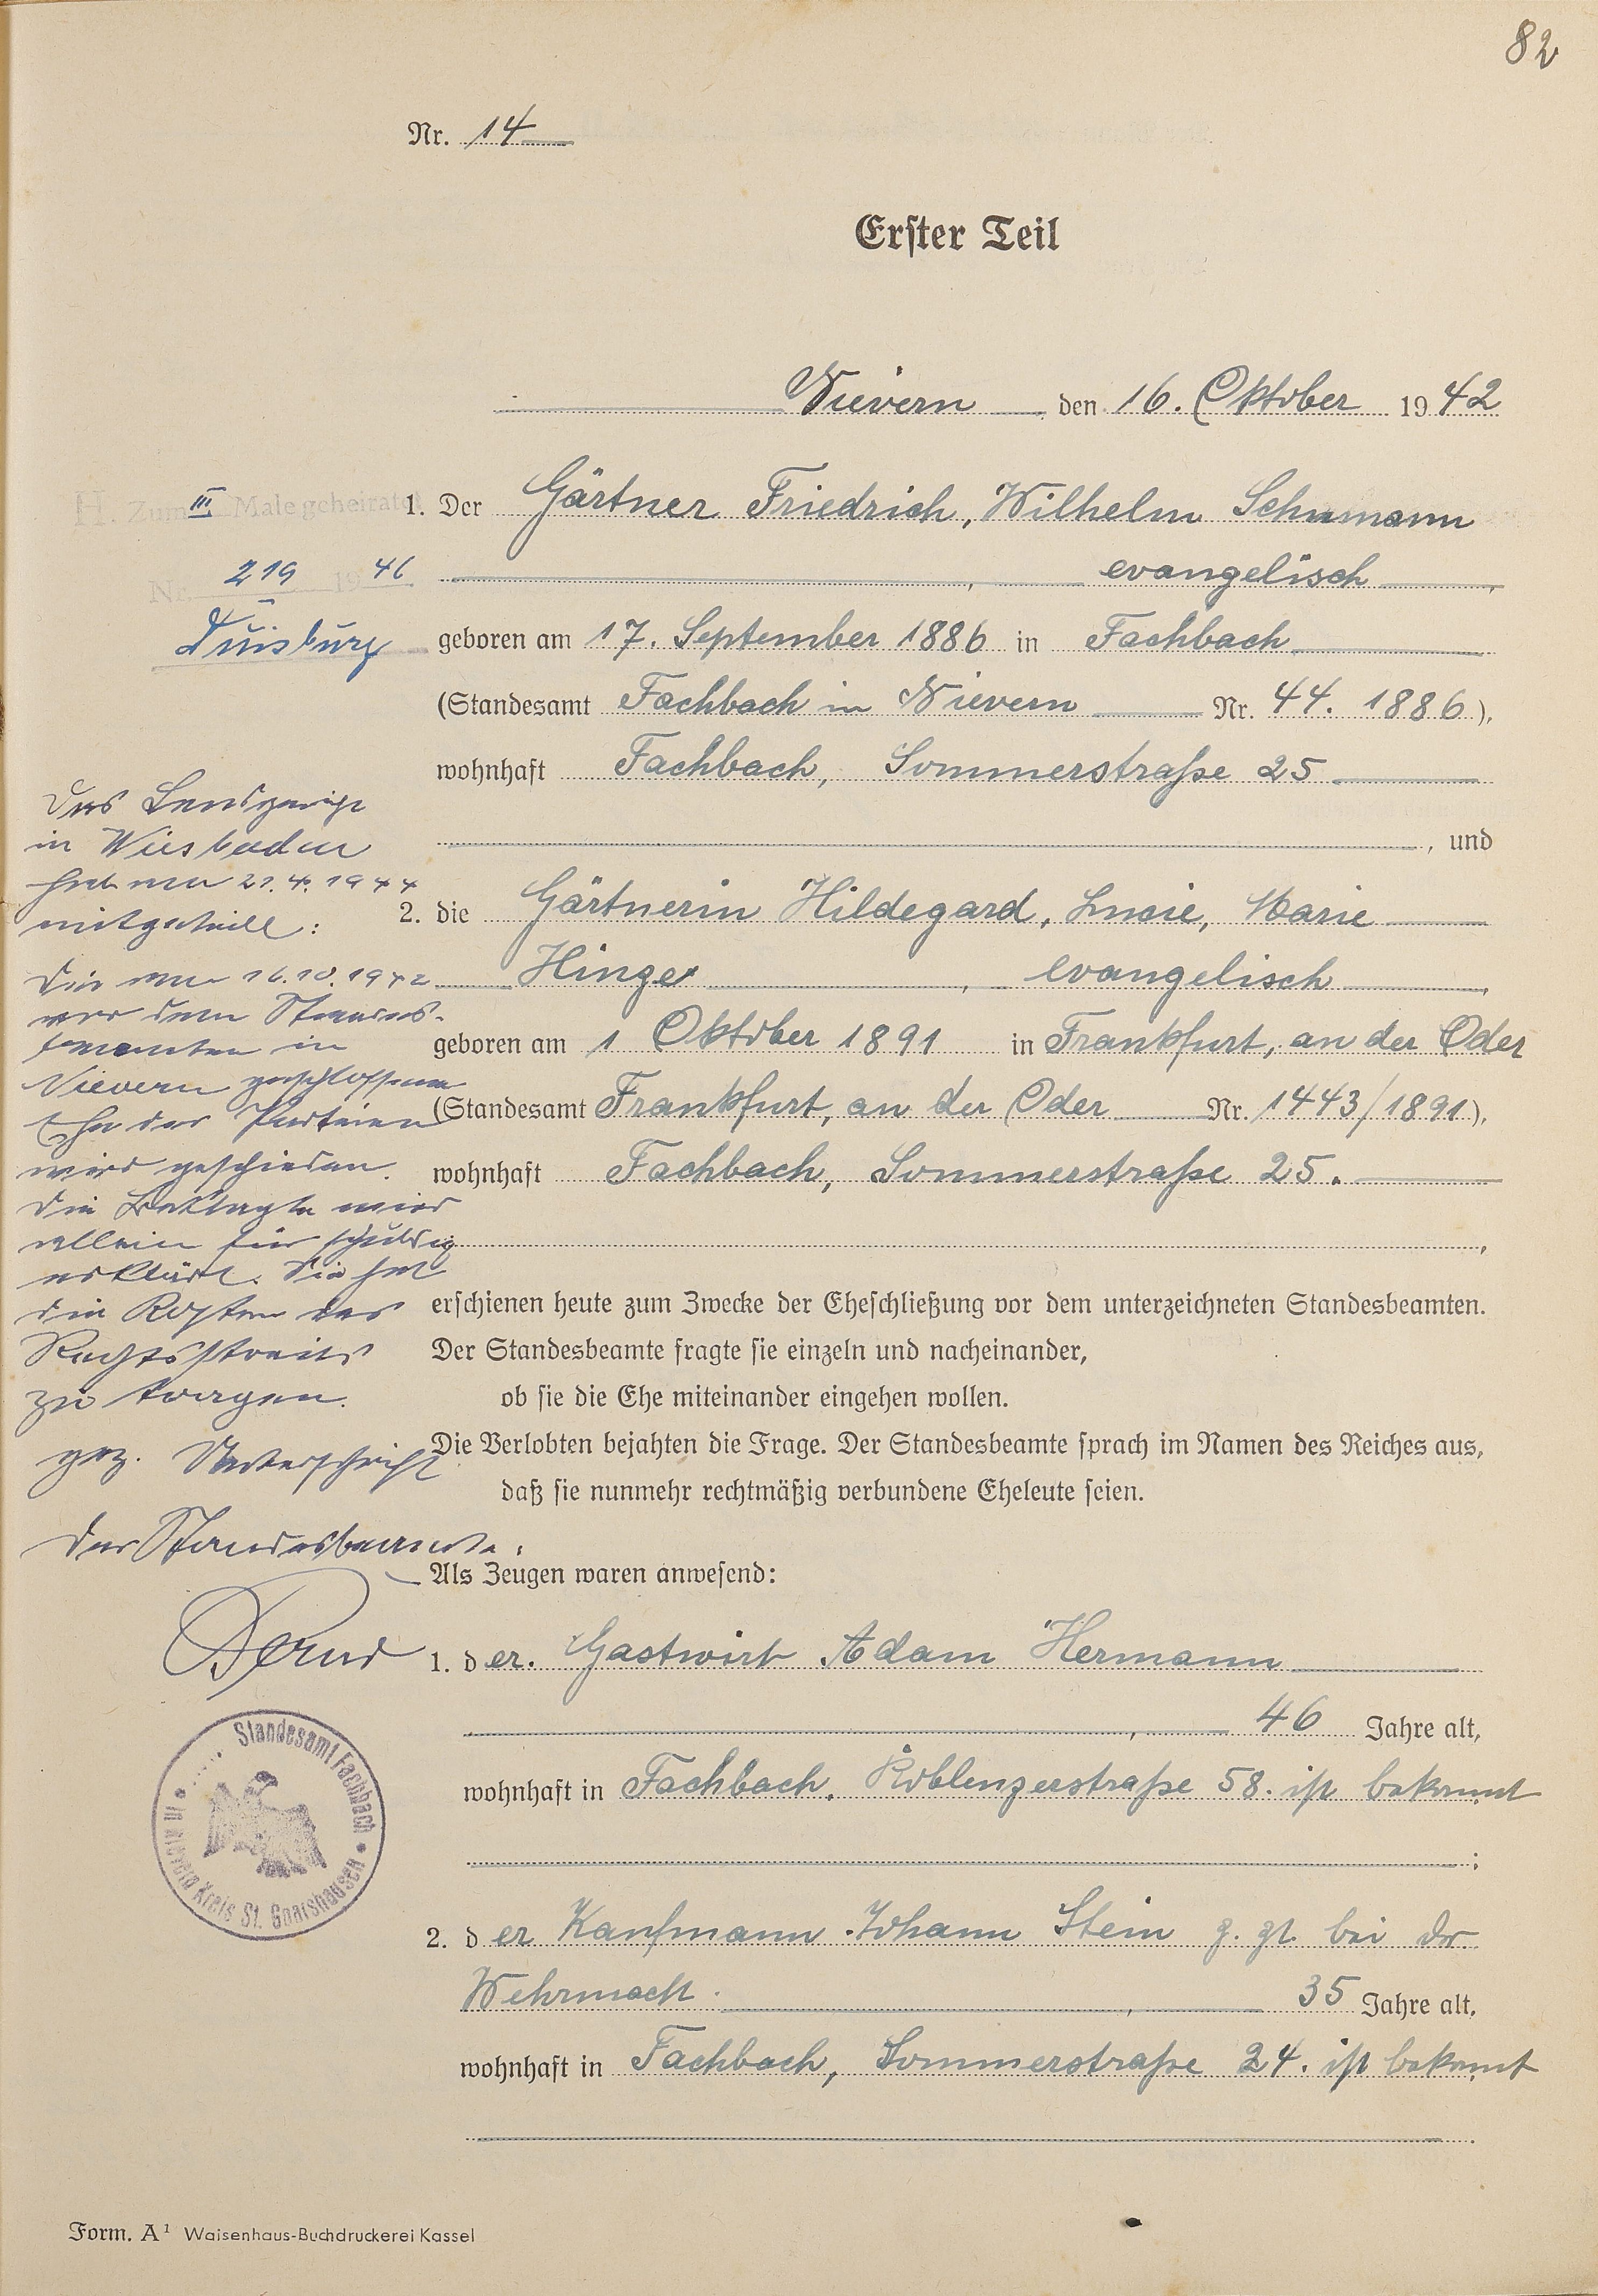 82
Nr. 14
Erster Teil
Nievern den 16. Oktober 1942
H. Zum III Male geheiratet
Nr. 219 1946
Duisburg
1. Der Gärtner Friedrich, Wilhelm Schumann
, evangelisch,
geboren am 17. September 1886 in Fachbach
(Standesamt Fachbach in Nievern Nr. 44. 1886),
wohnhaft Fachbach, Sommerstraße 25
, und
2. die Gärtnerin Hildegard, Lucie, Marie
Hinze, evangelisch,
geboren am 1 Oktober 1891 in Frankfurt, an der Oder
(Standesamt Frankfurt, an der Oder Nr. 1443/1891),
wohnhaft Fachbach, Sommerstraße 25.
,
Das Landgericht
in Wiesbaden
hat am 21.4.1944
mitgeteilt:
Die am 16.10.1942
vor dem Standes-
beamten in
Nievern geschlossene
Ehe der Parteien
wird geschieden.
Die Beklagte wird
allein für schuldig
erklärt. Sie hat
die Kosten des
Rechtsstreits
zu tragen.
gez. Unterschrift
Der Standesbeamte.
erschienen heute zum Zwecke der Eheschließung vor dem unterzeichneten Standesbeamten.
Der Standesbeamte fragte sie einzeln und nacheinander,
ob sie die Ehe miteinander eingehen wollen.
Die Verlobten bejahten die Frage. Der Standesbeamte sprach im Namen des Reiches aus,
daß sie nunmehr rechtmäßig verbundene Eheleute seien.
Als Zeugen waren anwesend:
1. der. Gastwirt Adam Hermann
, 46 Jahre alt,
wohnhaft in Fachbach, Koblenzerstraße 58. ist bekannt
;
2. der Kaufmann Johann Stein z. Zt. bei der
Wehrmacht. , 35 Jahre alt,
wohnhaft in Fachbach, Sommerstraße 24. ist bekannt
.
Standesamt Fachbach
in Nievern Kreis St. Goarshausen
Form. A¹ Waisenhaus-Buchdruckerei Kassel